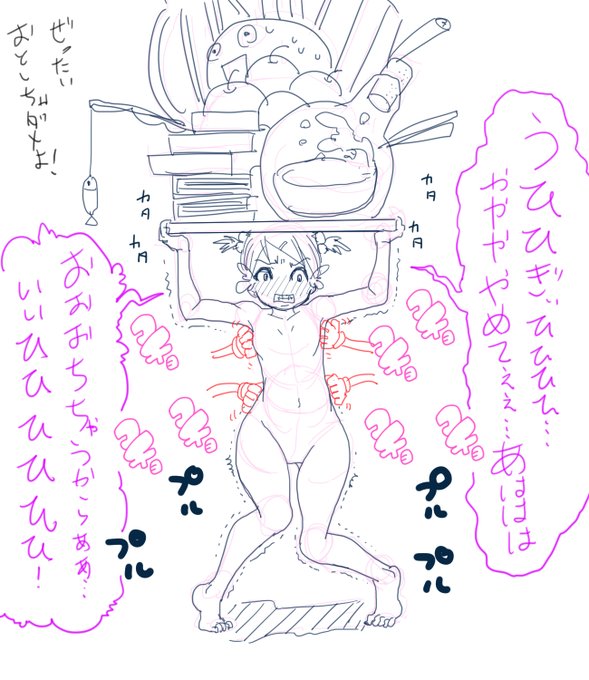 ぜったい
おとしちゃ
ダメよ!
うひひぎぃひひひ…
ややややめてぇぇ…あははは
カタ
カタ
カタ
カタ
おおおちちゃうからぁぁ…
いいひひひひひひ!
コチョ
コチョ
コチョ
コチョ
コチョ
コチョ
コチョ
プル
プル
プル
プル